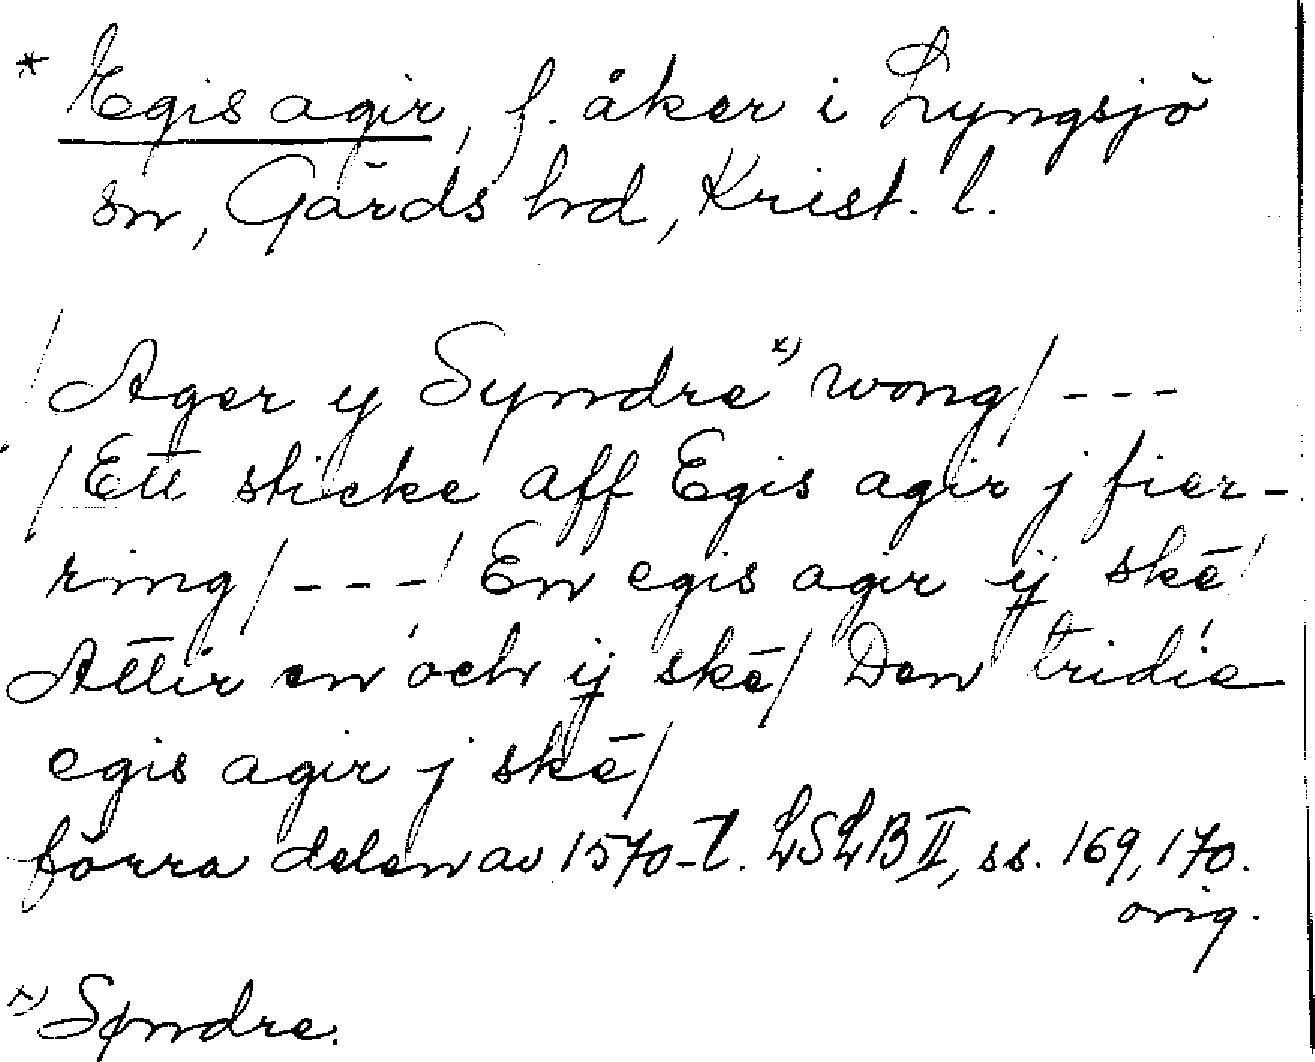 * Egis agir, f. åker i Lyngsjö
sn, Gärds hd, Krist. l.
/Ager y Syndre x) wong/ ---
/Ett sticke aff Egis agir j fier-
ring/ ---/ En egis agir ij skē/
Attir en och ij skē/ Den tridie
egis agir j skē/
förra delen av 1570-t. LSLB II, ss. 169, 170.
orig.
x) Søndre.